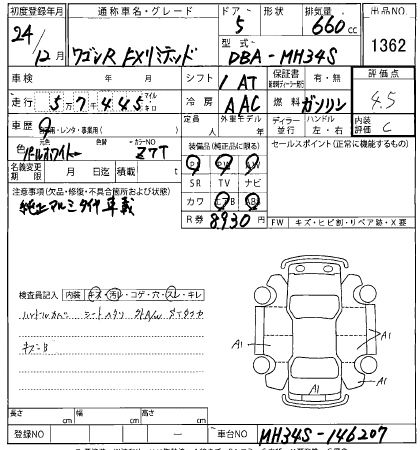 初度登録年月 通称車名・グレード ドア 形状 排気量 出品No
24/12月 ワゴンR FXリミテッド 5 660cc 1362
型式 DBA-MH34S
車検 年 月 シフト 1 AT 保証書 有・無 評価点
走行 57445 マイル キロ 冷房 AAC 燃料 ガソリン 4.5
車歴 自家用・レンタ・事業用( ) 定員 人 外車モデル 年 ディーラー 並行 ハンドル 左・右 内装評価 C
色 パールホワイト 色替 カラーNO Z7T 装備品(純正品に限る) セールスポイント(正常に機能するもの)
名義変更期限 月 日迄 積載 t PS PW AW
注意事項(欠品・修復・不具合箇所および状態) SR TV ナビ
純正アルミタイヤ車載 カワ エアB ABS
R券 8930 円 FW キズ・ヒビ割・リペア跡・X要
検査員記入 内装 キズ・汚レ・コゲ・穴・スレ・キレ
キズ
A1 A1 A1
長さ cm 幅 cm 高さ cm
登録NO ー 車台NO MH34S-146207